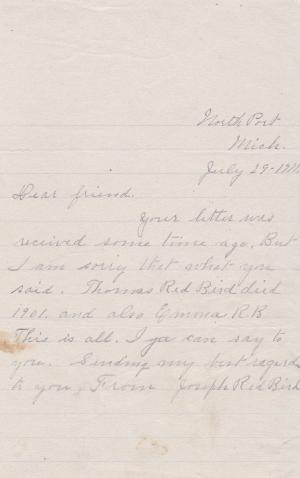 North Port
Mich.
July 29-
Dear friend.
Your letter was
received some time ago, But
I am sorry that what you
said. Thomas Red Bird died
1901. and also Emma R B
This is all. I can say to
you. Sending my best regard
to you, From Joseph Red Bird